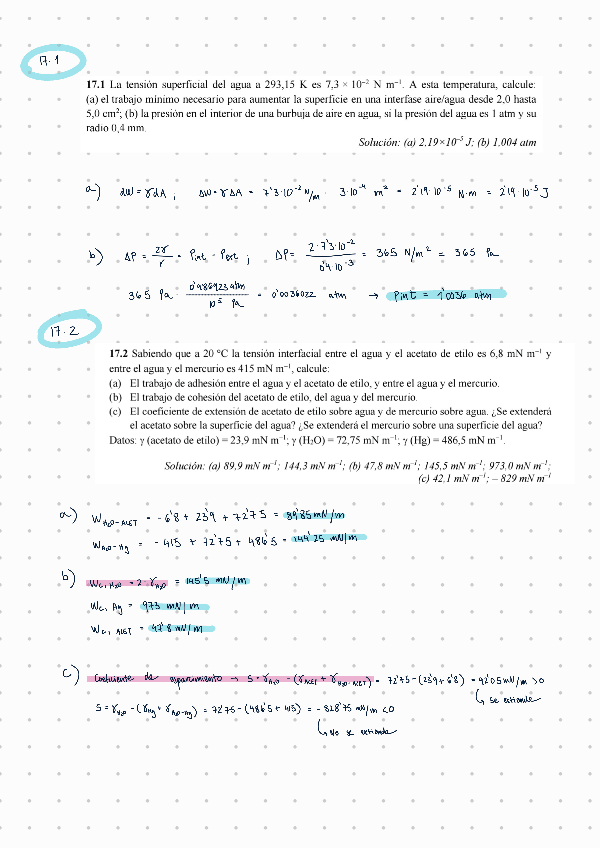 17.1
17.1 La tensión superficial del agua a 293,15 K es 7,3 × 10⁻² N m⁻¹. A esta temperatura, calcule:
(a) el trabajo mínimo necesario para aumentar la superficie en una interfase aire/agua desde 2,0 hasta
5,0 cm²; (b) la presión en el interior de una burbuja de aire en agua, si la presión del agua es 1 atm y su
radio 0,4 mm.
Solución: (a) 2.19×10⁻⁵ J; (b) 1.004 atm
a) dW = γdA ; ΔW = γΔA = 7'3·10⁻² N/m · 3·10⁻⁴ m² = 2'19·10⁻⁵ N·m = 2'19·10⁻⁵ J
b) ΔP = 2γ/r = Pint - Pext ; ΔP = 2·7'3·10⁻²/0'4·10⁻³ = 365 N/m² = 365 Pa
365 Pa · 0'986923 atm/10⁵ Pa = 0'0036022 atm → Pint = 1'0036 atm
17.2
17.2 Sabiendo que a 20 °C la tensión interfacial entre el agua y el acetato de etilo es 6,8 mN m⁻¹ y
entre el agua y el mercurio es 415 mN m⁻¹, calcule:
(a) El trabajo de adhesión entre el agua y el acetato de etilo, y entre el agua y el mercurio.
(b) El trabajo de cohesión del acetato de etilo, del agua y del mercurio.
(c) El coeficiente de extensión de acetato de etilo sobre agua y de mercurio sobre agua. ¿Se extenderá
el acetato sobre la superficie del agua? ¿Se extenderá el mercurio sobre una superficie del agua?
Datos: γ (acetato de etilo) = 23,9 mN m⁻¹; γ (H₂O) = 72,75 mN m⁻¹; γ (Hg) = 486,5 mN m⁻¹.
Solución: (a) 89,9 mN m⁻¹; 144,3 mN m⁻¹; (b) 47,8 mN m⁻¹; 145,5 mN m⁻¹; 973,0 mN m⁻¹;
(c) 42,1 mN m⁻¹; – 829 mN m⁻¹
a) W H₂O-ACET = -6'8 + 23'9 + 72'75 = 89'85 mN/m
W H₂O-Hg = -415 + 72'75 + 486'5 = 144'25 mN/m
b) Wc, H₂O = 2·γH₂O = 145'5 mN/m
Wc, Hg = 973 mN/m
Wc, ACET = 47'8 mN/m
c) Coeficiente de esparcimiento → S = γH₂O - (γACET + γH₂O-ACET) = 72'75 - (23'9 + 6'8) = 42'05 mN/m > 0
↳ Se extiende
S = γH₂O - (γHg + γH₂O-Hg) = 72'75 - (486'5 + 415) = -828'75 mN/m < 0
↳ No se extiende